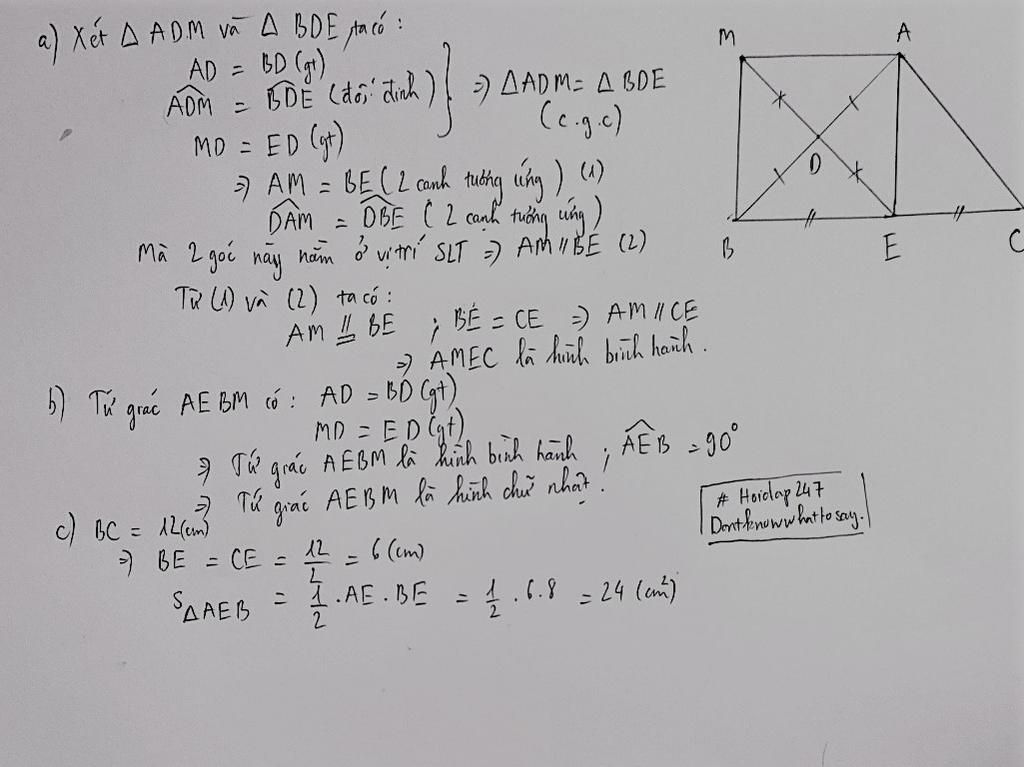 a) Xét Δ ADM và Δ BDE, ta có:
AD = BD (gt)
ADM = BDE (đối đỉnh) } => ΔADM = Δ BDE
(c.g.c)
MD = ED (gt)
=> AM = BE (2 cạnh tương ứng) (1)
DAM = DBE (2 cạnh tương ứng)
Mà 2 góc này nằm ở vị trí SLT => AM // BE (2)
Từ (1) và (2) ta có:
AM // = BE ; BE = CE => AM // CE
=> AMEC là hình bình hành.
b) Tứ giác AEBM có: AD = BD (gt)
MD = ED (gt)
=> Tứ giác AEBM là hình bình hành ; AEB = 90°
=> Tứ giác AEBM là hình chữ nhật.
c) BC = 12(cm)
=> BE = CE = 12/2 = 6 (cm)
S ΔAEB = 1/2 . AE . BE = 1/2 . 6.8 = 24 (cm²)
M A
D
B E C
# Hoidap247
Dontknowwhattosay.